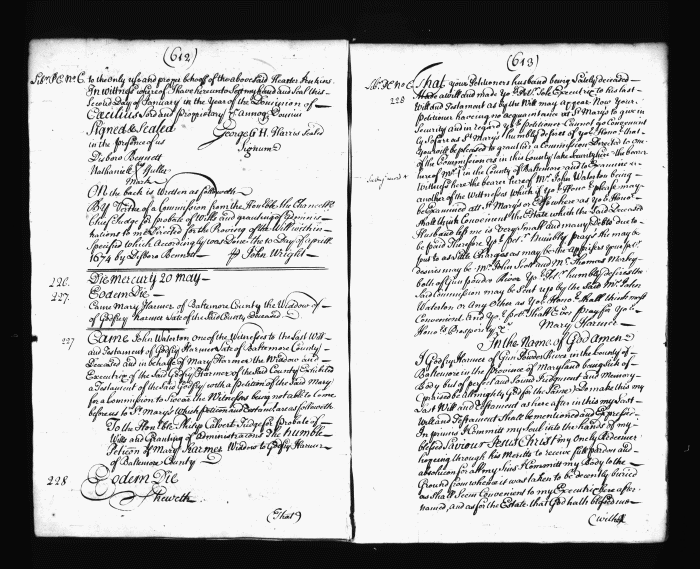 (612)
to the only use and proper behoof of the abovesaid Heaster Jenkins
In witnes whereof I have hereunto Set my hand and Seal this
Second Day of January in the Year of the Dominion of
Cæcilius Lord and Proprietary &c Annoq Domini
Signed & Sealed George H Harris Seald
in the presence of us Signum
Desboro Bennett
Nathaniell Miller
Mark
On the back is written as followeth
By Virtue of a Commission from the Honble the Chancellr
Chief Judge of Probate of Wills and granting of Adminis
trations to me Directed for the Proving of the Will within
Specified which Accordingly was Done the 10 Day of aprill
1674 by Desboro Bennett John Wright
226. Die Mercury 20 may
227. Eodem Die
Came Mary Harmer of Baltemore County the Widdow of
of Godfrey Harmer Late of the Said County Deceased
227 Came John Waterton one of the Witnesses to the Last Will
and Testament of Godfrey Harmer Late of Baltemore County
Deceased and on behalf of Mary Harmer the Widdow and
Executrix of the Said Godfrey Harmer of the Said County Exhibited
a Testament of the Said Godfrey with a petition of the Said Mary
for a Commission to Swear the Witnesses being not able to Come
before us to St Marys Which petition and Testament are as followeth
To the Honble Philip Calvert Judge for Probate of
Wills and Granting of Administrations The humble
Peticon of Mary Harmer Widdow to Godfrey Harmer
of Baltemore County
228 Eodem Die
Sheweth
(That)
(613)
That your Petitioners husband being Lately deceased
228 made a will and made Yor Petr Sole Executrix to his last
Will and Testament as by the Will may appear Now Your
Petitioner having no acquaintance at St Marys to give in
Security and in regard yor petitioner Cannot go Conveniently
So far as St Marys The humble desires of yor Honor that
You will be pleased to grant her a Commission Directed to one
of the Commissioners in this County
in the County of Baltemore and to Examine
Witness here the bearer hereof Mr John Waterton being
another of the Witnesses which if yor Honor please may
be Examined att St Marys or Else where as Yor Honor
Shall think Convenient the Estate which the Said Deceased
Husband left me is Very Small and many Debts due to
be paid Therefore Yor Petr humbly prays She may be
put to as little Charges as may be the Apprizers your Petr
desires may be Mr John Scott and Mr Thomas Morley
both of Gun powder River Yor Petr humbly desires the
Said Commission may be Sent up by the Said Mr John
Waterton or Any Other as Yor Honor Shall think most
Convenient And Yor Petr Shall Ever pray for Yor
Honors Prosperity &c Mary Harmer
In the Name of God Amen
I Godfrey Harmer of Gun Powder River in the County of
Baltemore in the province of Maryland being Sick of
Body but of perfect and Sound Judgment and Memory
(praised be allmighty God for the Same) Do make this my
Last Will and Testament as here after in this my Last
Will and Testament Shall be mentioned and Expressed
In primis I Committ my Soul into the hands of my
blessed Saviour Jesus Christ my only Redeemer
hopeing through his Merritts to receive full pardon and
absolucon for all my Sins I Committ my Body to the
Ground from whence it was taken to be decently buried
as Shall Seem Convenient to my Executrix here after
named, and as for the Estate that God hath blessed me
(with)